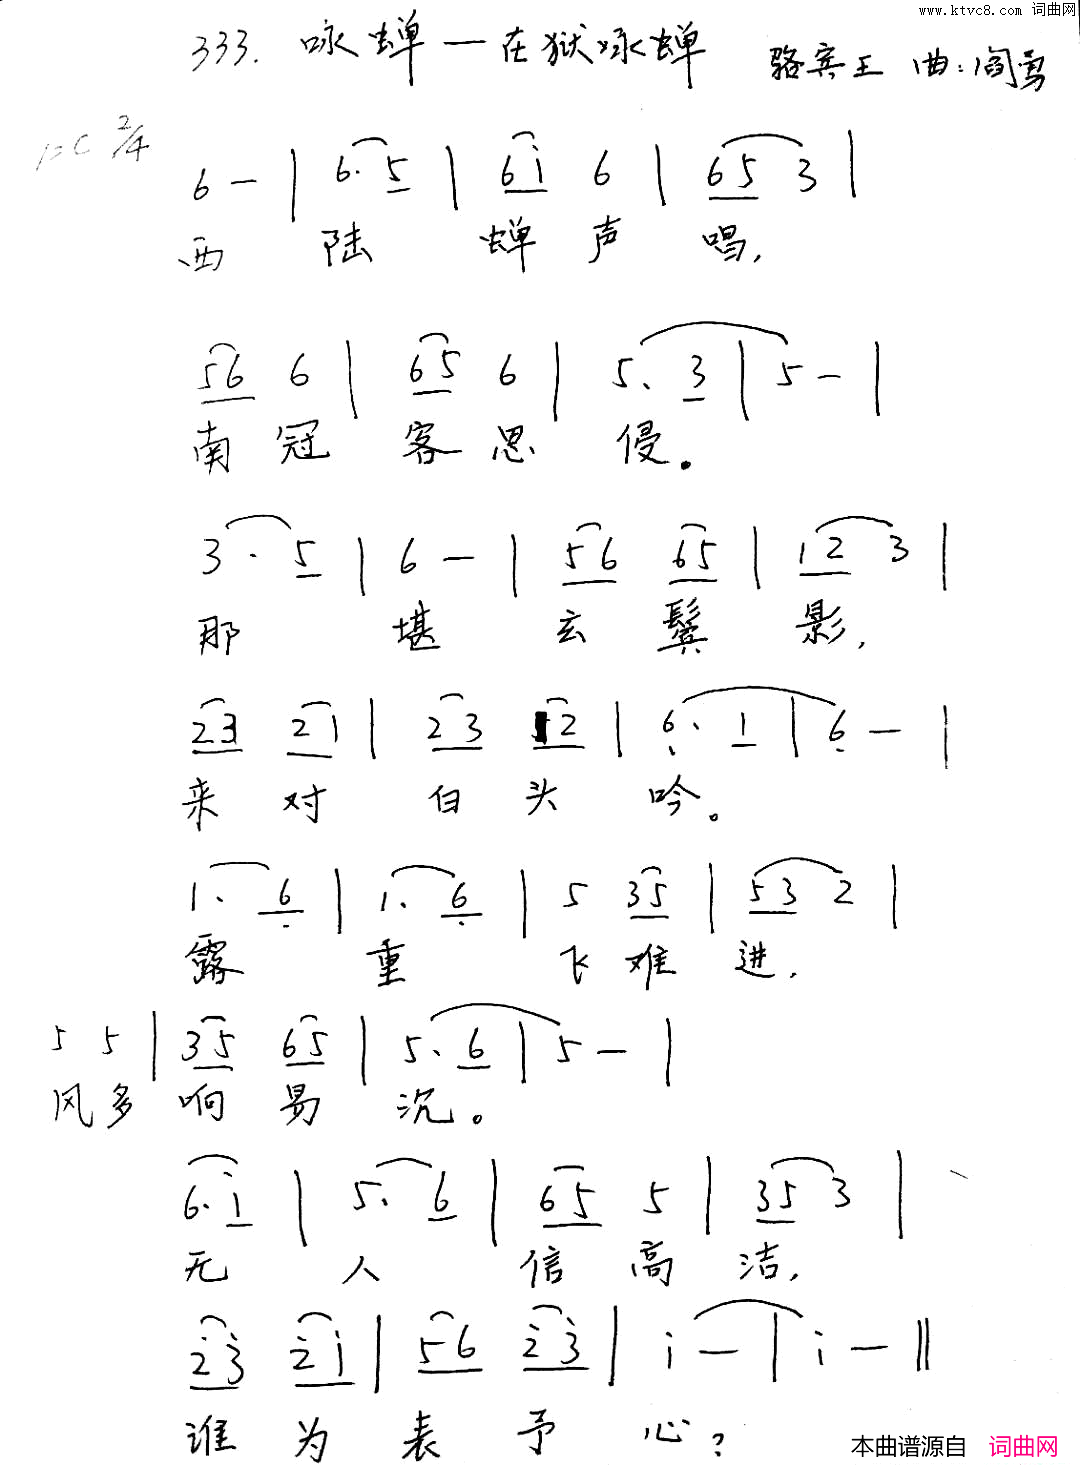 www.ktvc8.com 词曲网
333. 咏蝉一在狱咏蝉
骆宾王 曲:阎勇
1=C 2/4
6 — | 6· 5 | 6 i 6 | 6 5 3 |
西 陆 蝉 声 唱,
5 6 6 | 6 5 6 | 5· 3 | 5 — |
南 冠 客 思 侵。
3 · 5 | 6 — | 5 6 6 5 | 1 2 3 |
那 堪 玄 鬓 影,
2 3 2 1 | 2 3 1 2 | 6· 1 | 6 — |
来 对 白 头 吟。
1· 6 | 1· 6 | 5 3 5 | 5 3 2 |
露 重 飞 难 进,
5 5 | 3 5 6 5 | 5· 6 | 5 — |
风 多 响 易 沉。
6· i | 5· 6 | 6 5 5 | 3 5 3 |
无 人 信 高 洁,
2 3 2 i | 5 6 2 3 | i — | i — ‖
谁 为 表 予 心?
本曲谱源自 词曲网